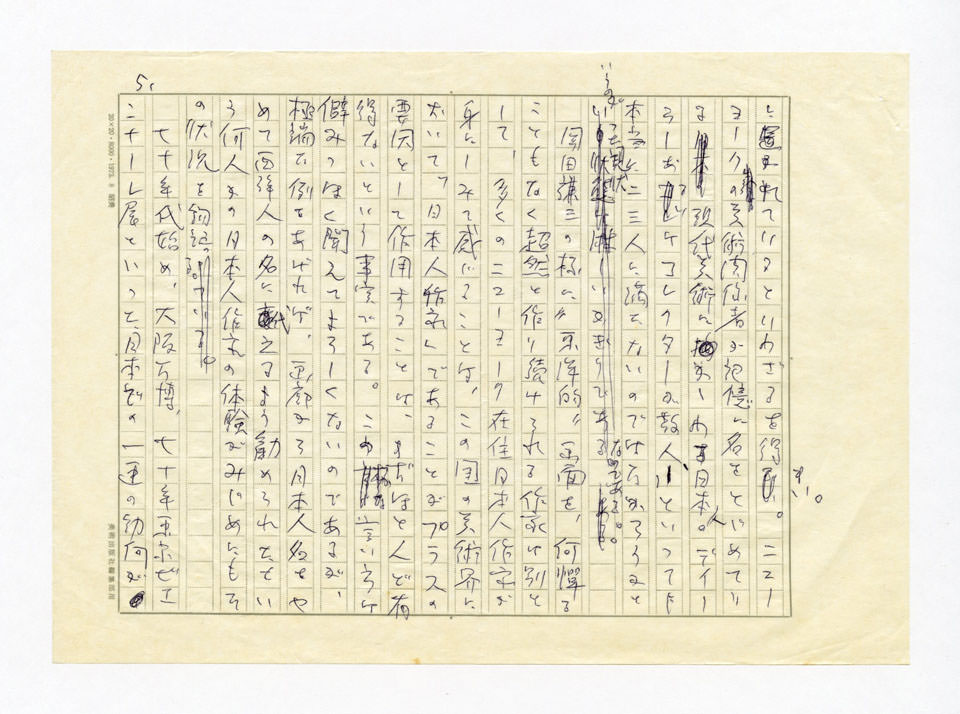 に置かれているといわざるを得ない。ニュー
ヨークの美術関係者が記憶に名をとどめてい
る現代美術に わる日本人。ディー
ラーおよびコレクターが数人、といっても
本当に二三人に満たないのではなかろうかと
いうのが 現状なのである。
岡田謙三の極に〝東洋的〟画面を、何憚る
こともなく超然と作り続けられる作家は別と
して、多くのニューヨーク在住日本人作家が
身にしみて感じることは、この国の美術界に
おいて、日本人作家であることがプラスの
要因として作用することは、まだほとんど有
得ないという事実である。この 言い方は
僻みっぽく聞えてよろしくないのであるが、
極端な例をあげれば、画廊から日本人名をや
めて西洋人の名に変えるよう勧められたとい
う何人かの日本人作家の体験がみじめにもそ
の状況を物語っている。
七十年代始め、大阪万博、七十年東京ビエ
ンナーレ展といった、日本での一連の動向が
5.
20×20・8000・1973. 8 昭典
美術出版社編集部用